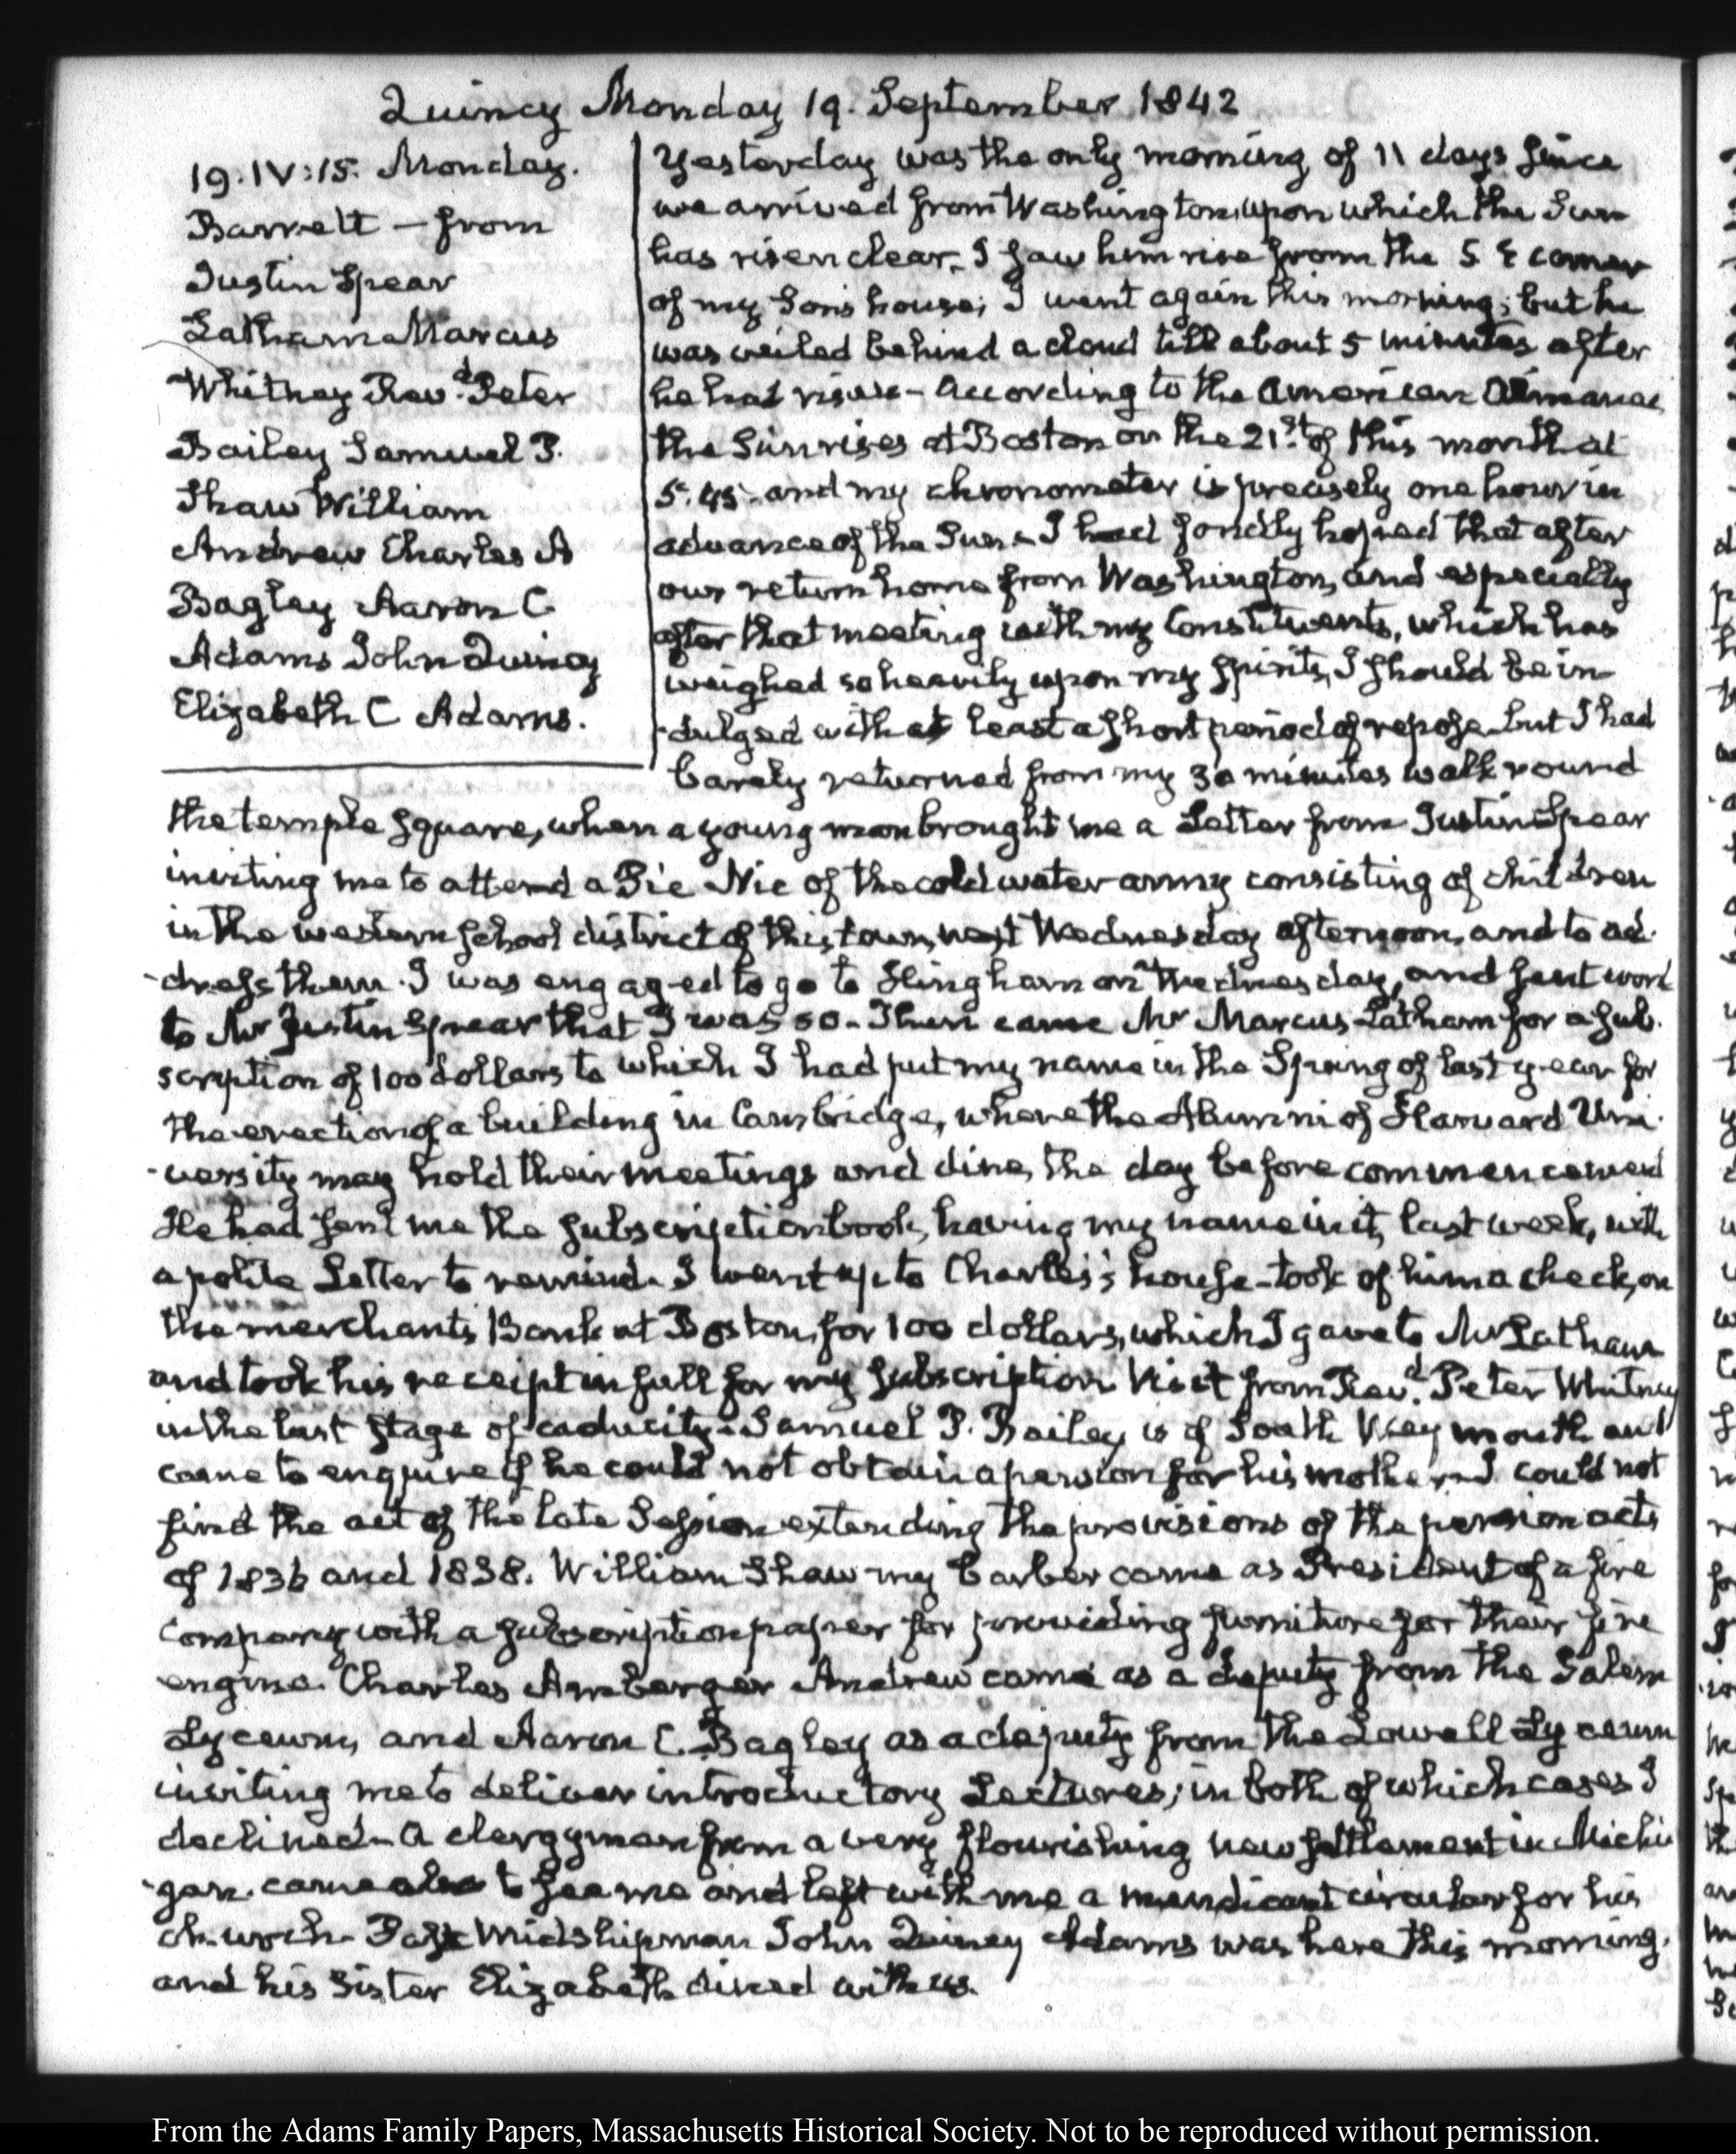 Quincy Monday 19. September 1842
19. IV:15. Monday.
Barrett — from
Justin Spear
Latham Marcus
Whitney Revd. Peter
Bailey Samuel P.
Shaw William
Andrew Charles A
Bagley Aaron C
Adams John Quincy
Elizabeth C Adams.
Yesterday was the only morning of 11 days since
we arrived from Washington, upon which the Sun
has risen clear. I saw him rise from the S E corner
of my Son's house; I went again this morning; but he
was veiled behind a cloud till about 5 minutes after
he had risen – According to the American Almanac
the Sun rises at Boston on the 21st. of this month at
5.45 – and my chronometer is precisely one hour in
advance of the Sun – I had fondly hoped that after
our return home from Washington, and especially
after that meeting with my Constituents, which has
weighed so heavily upon my Spirits, I should be in-
-dulged with at least a short period of repose – but I had
barely returned from my 30 minutes walk round
the temple square, when a young man brought me a Letter from Justin Spear
inviting me to attend a Pic Nic of the cold water army consisting of children
in the western school district of this town, next Wednesday afternoon, and to ad-
-dress them. I was engaged to go to Hingham on Wednesday, and sent word
to Mr Justin Spear that I was so – Then came Mr Marcus Latham for a sub-
scription of 100 dollars to which I had put my name in the Spring of last year for
the erection of a building in Cambridge, where the Alumni of Harvard Uni-
-versity may hold their meetings and dine, the day before commencement
He had sent me the subscription book, having my name in it, last week, with
a polite Letter to remind. I went up to Charles's house – took of him a check, on
the merchants Bank at Boston, for 100 dollars, which I gave to Mr Latham
and took his receipt in full for my subscription Visit from Revd. Peter Whitney
in the last stage of caducity – Samuel P. Bailey is of South Weymouth and
came to enquire if he could not obtain a pension for his mother – I could not
find the act of the late Session extending the provisions of the pension acts
of 1836 and 1838. William Shaw my barber came as President of a fire
company with a subscription paper for providing furniture for their fire
engine. Charles Amberger Andrew came as a deputy from the Salem
Lyceum, and Aaron C. Bagley as a deputy from the Lowell Lyceum
inviting me to deliver introductory Lectures; in both of which cases I
declined – A clergyman from a very flourishing new settlement in Michi
-gan came also to see me and left with me a mendicant circular for his
church – Past Midshipman John Quincy Adams was here this morning,
and his Sister Elizabeth dined with us.
From the Adams Family Papers, Massachusetts Historical Society. Not to be reproduced without permission.